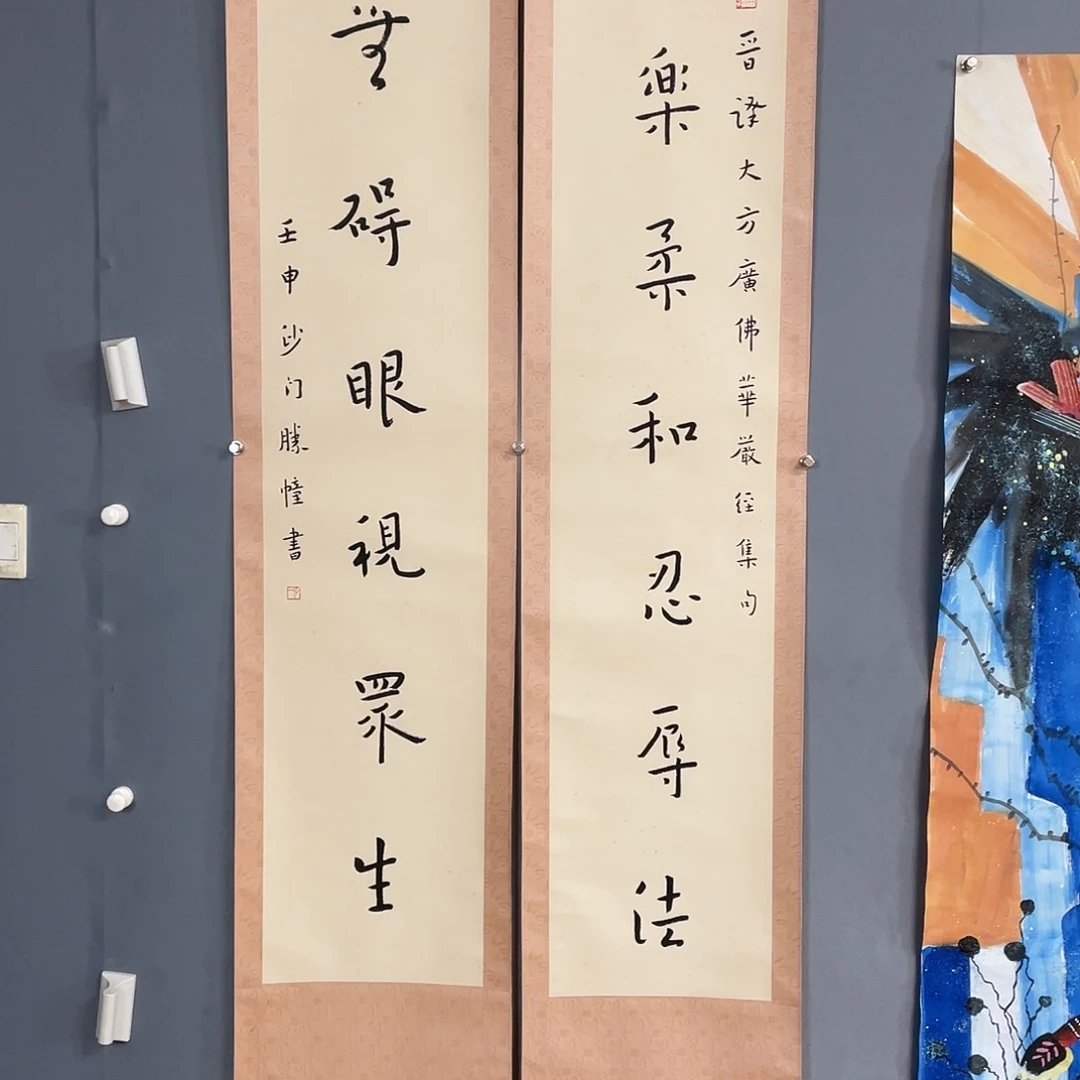 晋譯大方廣佛華嚴經集句
樂柔和忍辱法
無礙眼視眾生
壬申沙门勝幢書